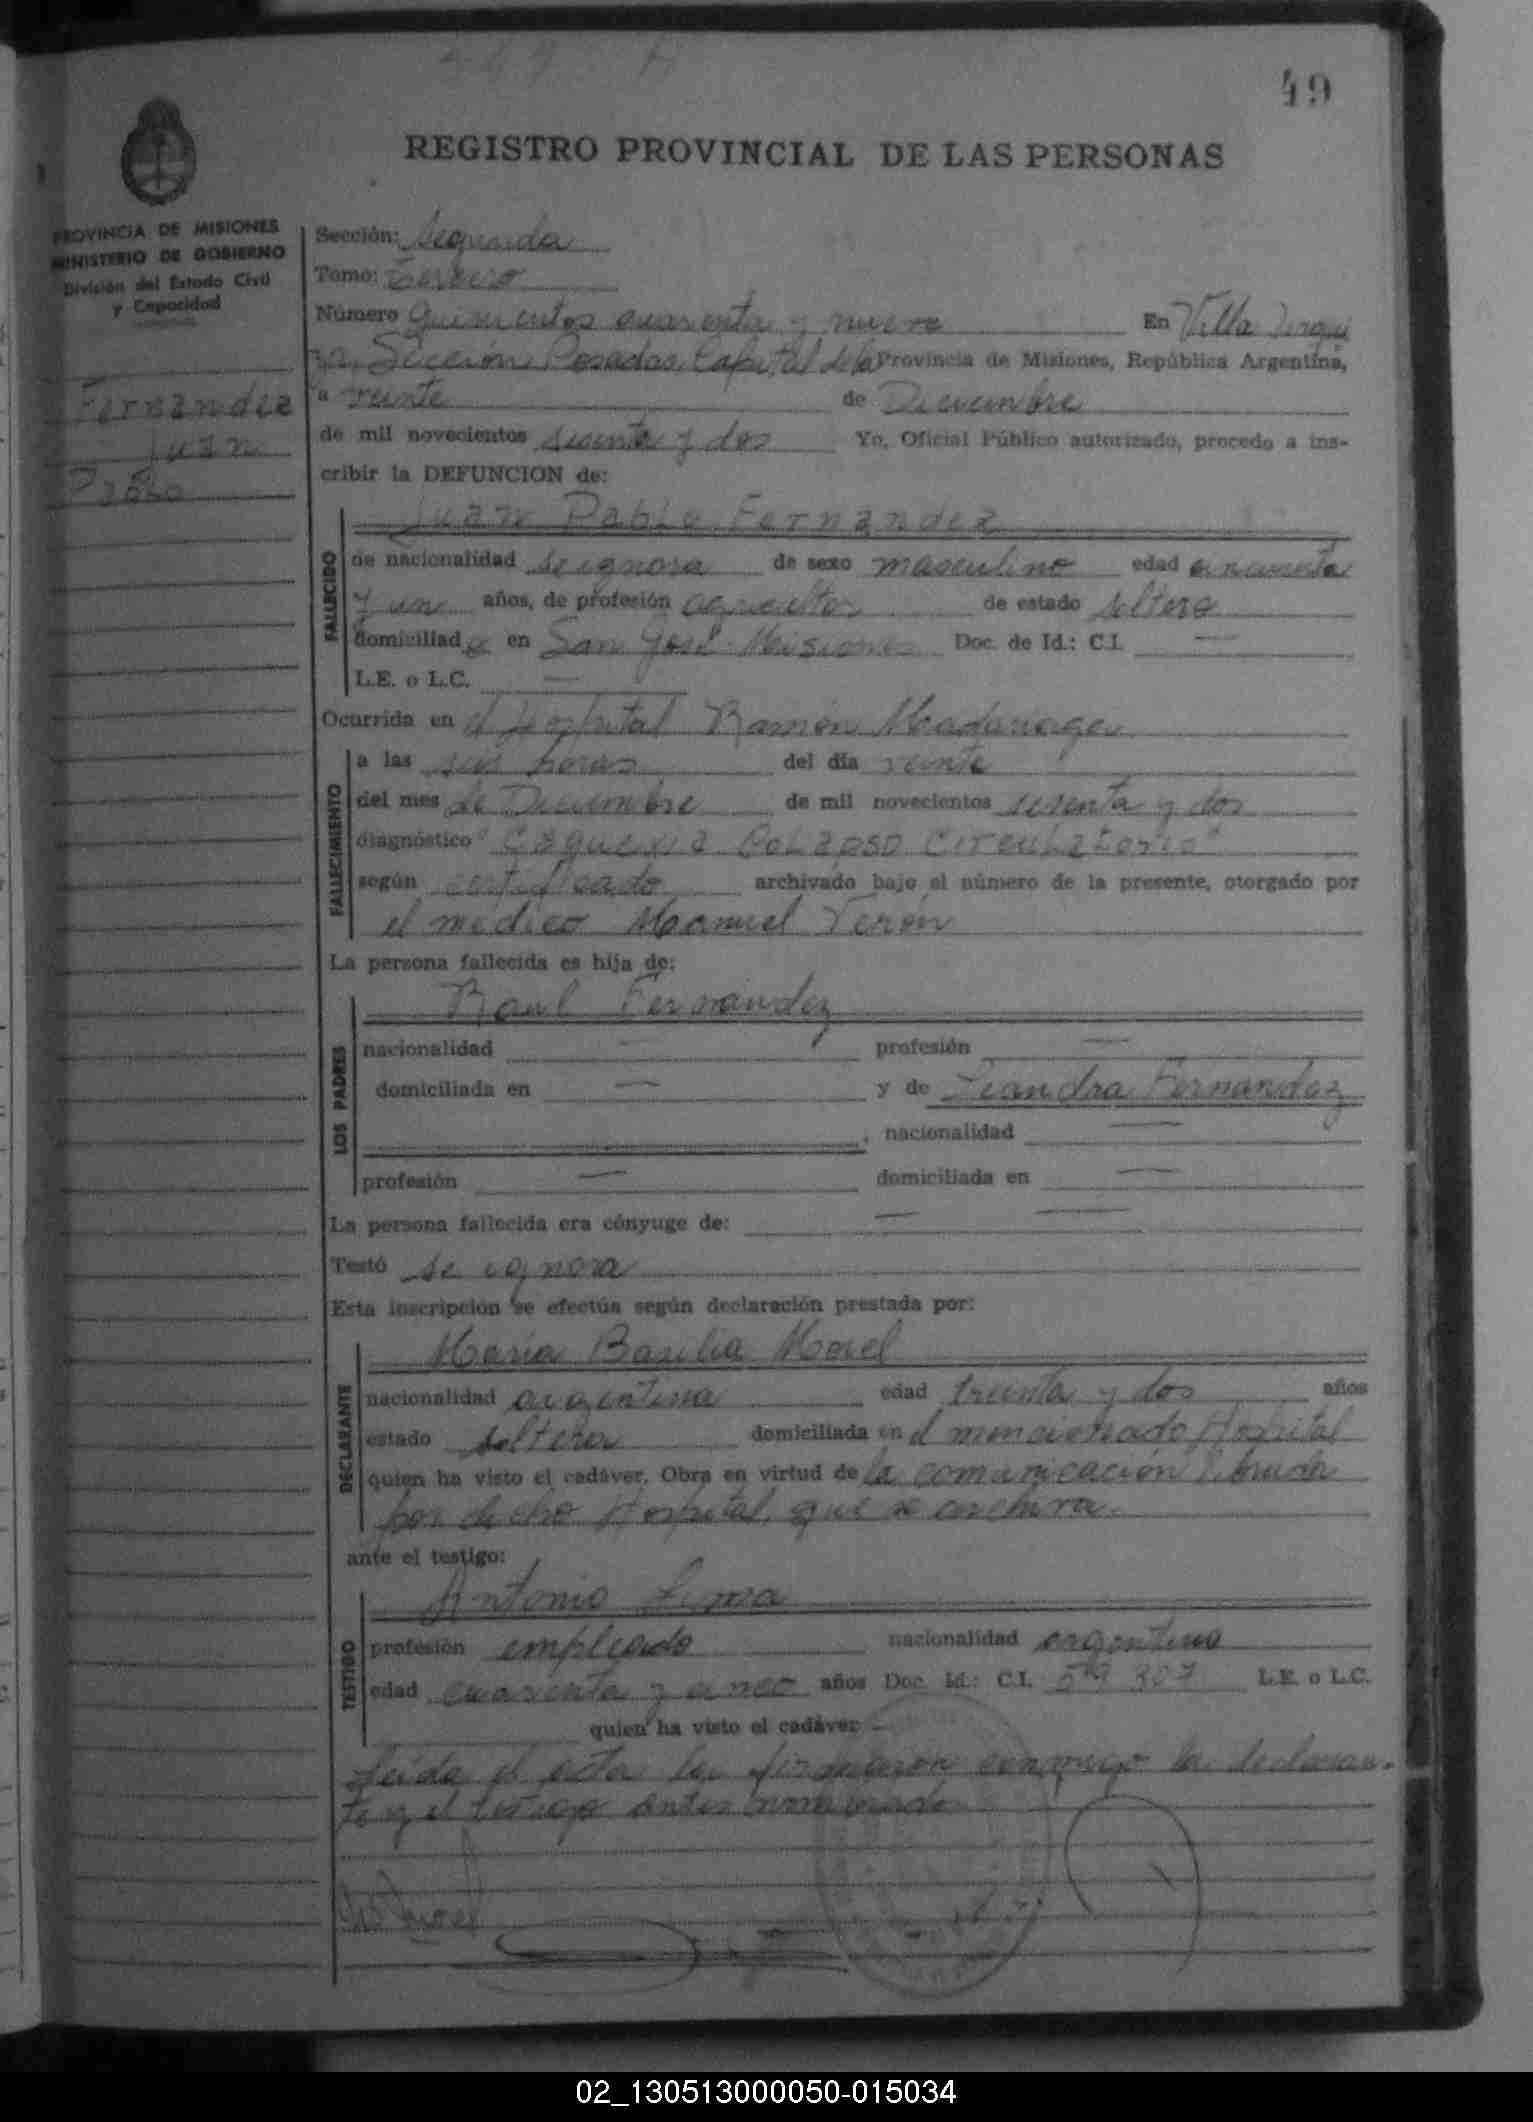 49
REGISTRO PROVINCIAL DE LAS PERSONAS
PROVINCIA DE MISIONES
MINISTERIO DE GOBIERNO
División del Estado Civil
y Capacidad
Fernandez
Juan
Pablo
Sección: Segunda
Tomo: Tercero
Número quinientos cuarenta y nueve En Villa Urqui
za, Sección Posadas, Capital de la Provincia de Misiones, República Argentina,
a veinte de Diciembre
de mil novecientos sesenta y dos Yo, Oficial Público autorizado, procedo a ins-
cribir la DEFUNCION de:
FALLECIDO
Juan Pablo Fernandez
de nacionalidad se ignora de sexo masculino edad cincuenta
y un años, de profesión agricultor de estado soltero
domiciliado en San José Misiones Doc. de Id.: C.I. —
L.E. o L.C. —
Ocurrida en el Hospital Ramón Madariaga
FALLECIMIENTO
a las seis horas del día veinte
del mes de Diciembre de mil novecientos sesenta y dos
diagnóstico "Caquexia Colapso Circulatorio"
según certificado archivado bajo el número de la presente, otorgado por
el medico Manuel Verón
La persona fallecida es hija de:
LOS PADRES
Raul Fernández
nacionalidad — profesión —
domiciliada en — y de Leandra Fernandez
, nacionalidad —
profesión — domiciliada en —
La persona fallecida era cónyuge de: — —
Testó se ignora
Esta inscripción se efectúa según declaración prestada por:
DECLARANTE
María Basilia Morel
nacionalidad argentina edad treinta y dos años
estado soltera domiciliada en el mencionado Hospital
quien ha visto el cadáver. Obra en virtud de la comunicación librada
por dicho Hospital, que se archiva.
ante el testigo:
TESTIGO
Antonio Lima
profesión empleado nacionalidad argentino
edad cuarenta y cinco años Doc. Id.: C.I. 59 307 L.E. o L.C.
quien ha visto el cadáver —
Leída el acta la firmaron conmigo la declaran-
te y el testigo antes nombrado
02_130513000050-015034